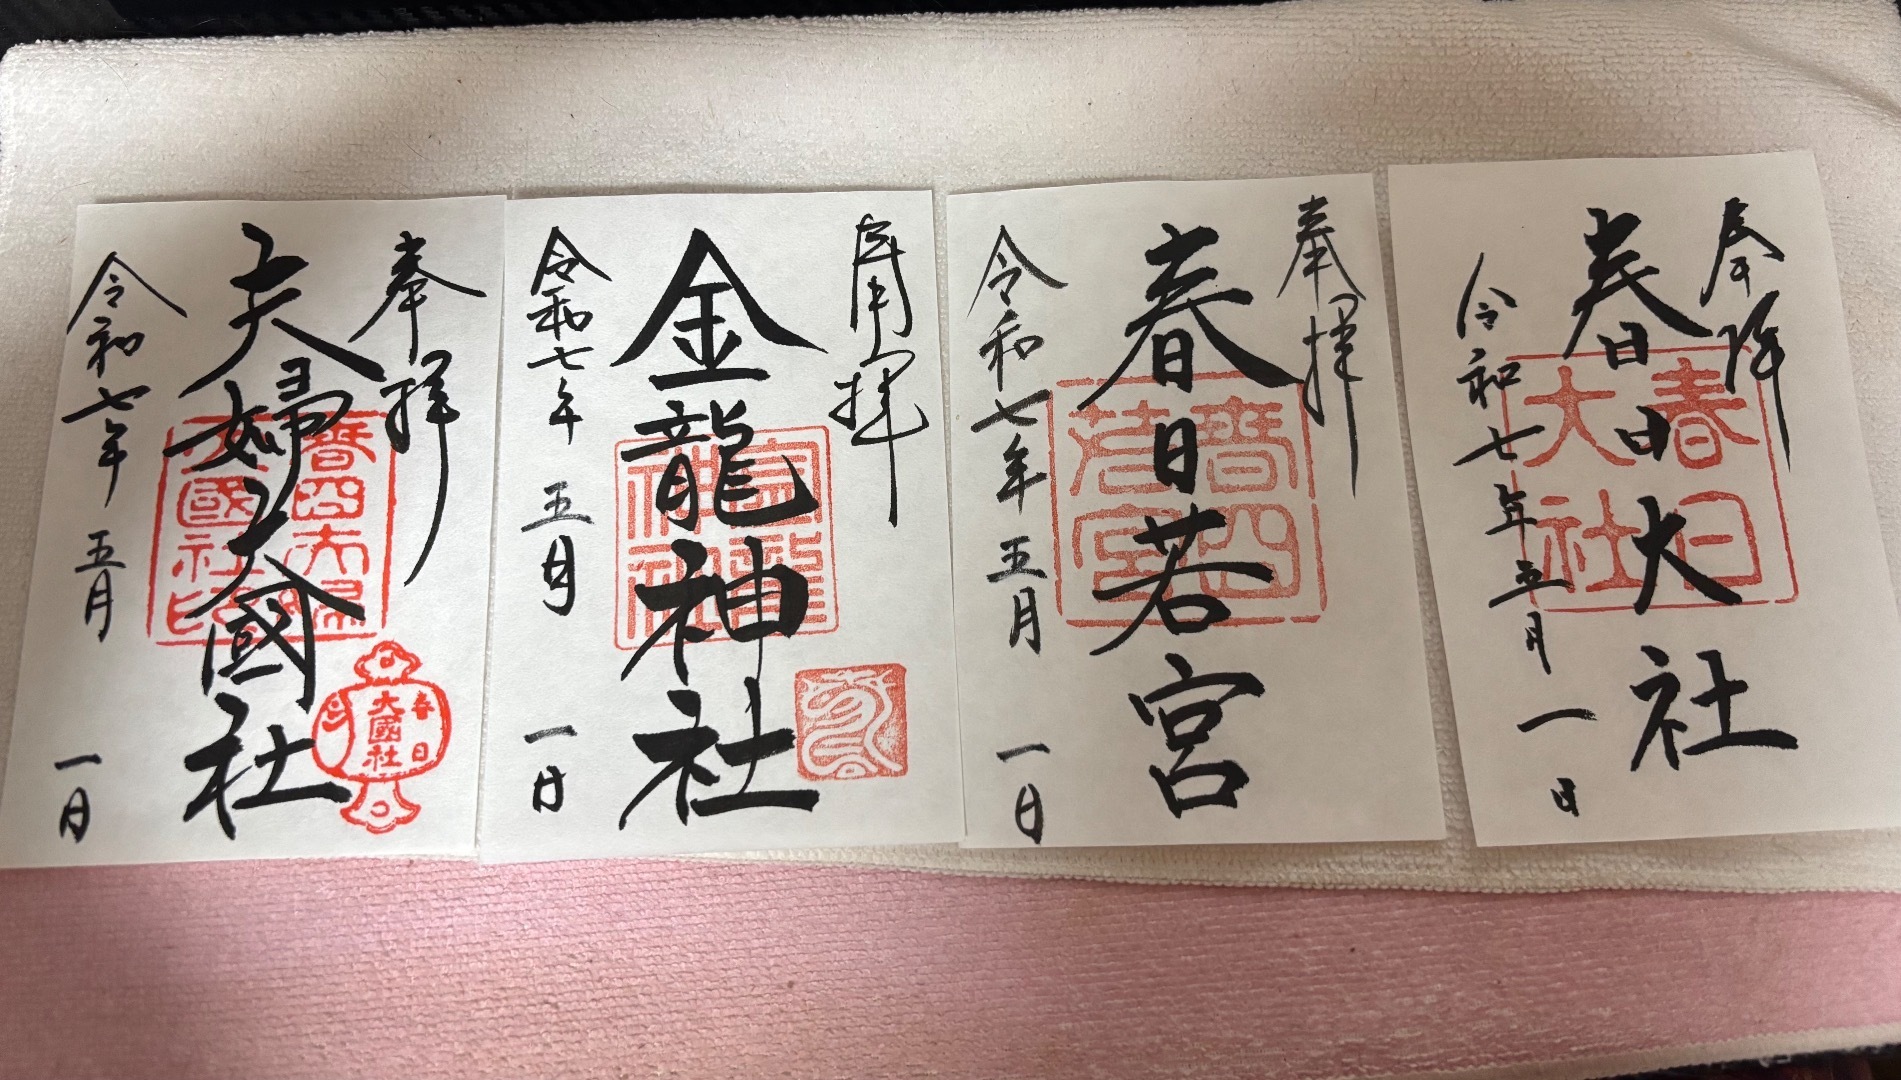 奉拝
春日大社
春日大社
令和七年五月一日
奉拝
春日若宮
令和七年五月一日
奉拝
金龍神社
令和七年五月一日
奉拝
夫婦大國社
春日
大國社
令和七年五月一日